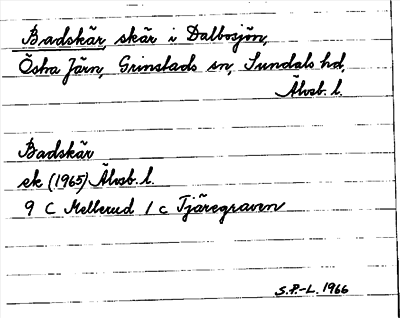 Badskär, skär i Dalbosjön,
Östra Järn, Grinstads sn, Sundals hd,
Älvsb. l.
Badskär
ek (1965) Älvsb. l.
9 C Mellerud 1 c Tjäregraven
S.P.-L. 1966